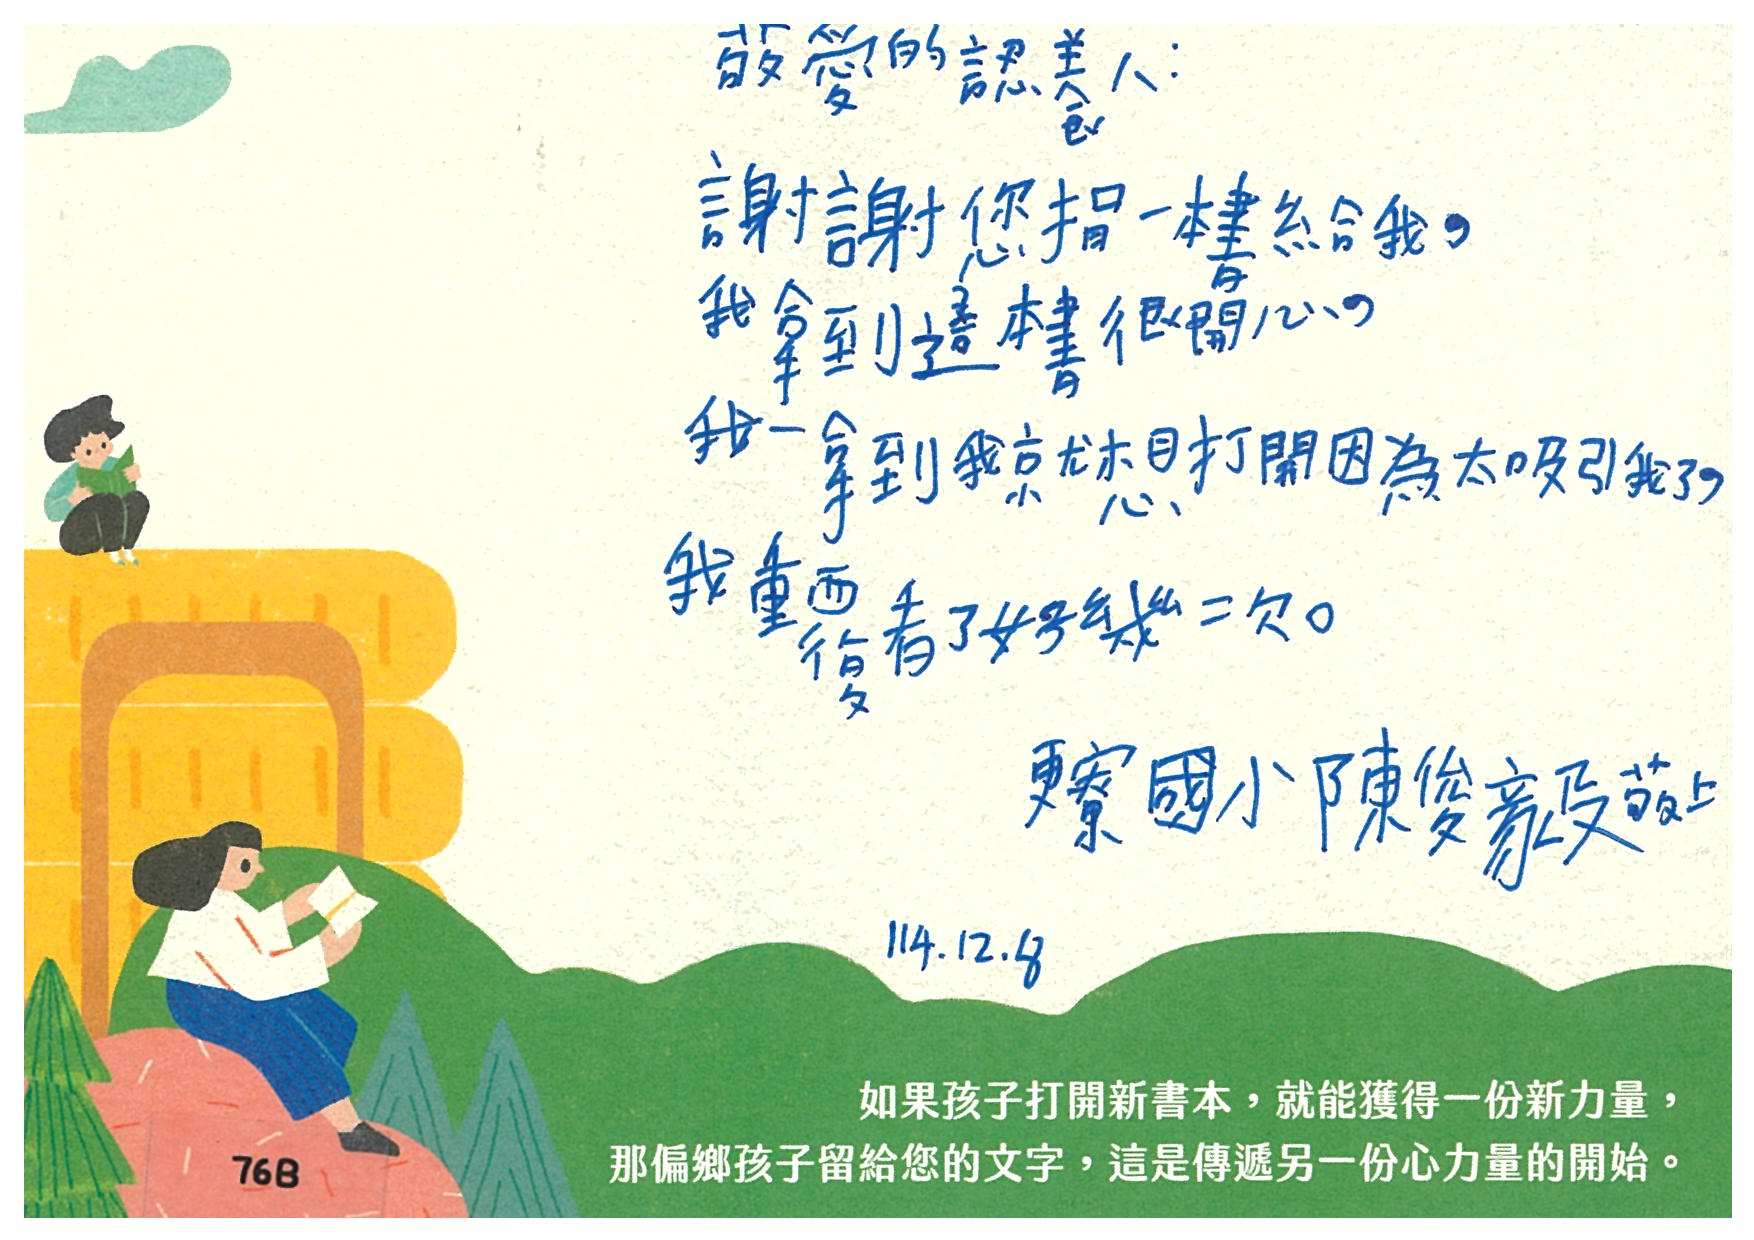 敬愛的認養人:
謝謝您捐一本書給我,
我拿到這本書很開心,
我一拿到我就想打開因為太吸引我了,
我重複看了好幾二次。
更寮國小陳俊毅敬上
114.12.8
如果孩子打開新書本,就能獲得一份新力量,
那偏鄉孩子留給您的文字,這是傳遞另一份心力量的開始。
76B